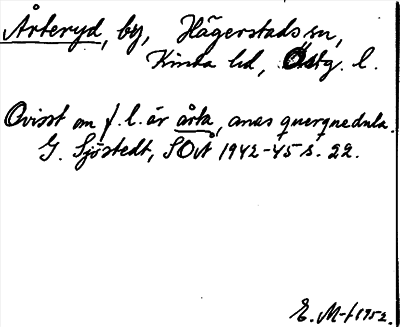 Årteryd, by, Hägerstads sn,
Kinda hd, Östg. l.
Ovisst om f. l. är årta, anas querquedula.
G. Sjöstedt, SOvt 1942-45 s. 22.
E. M-f 1952.